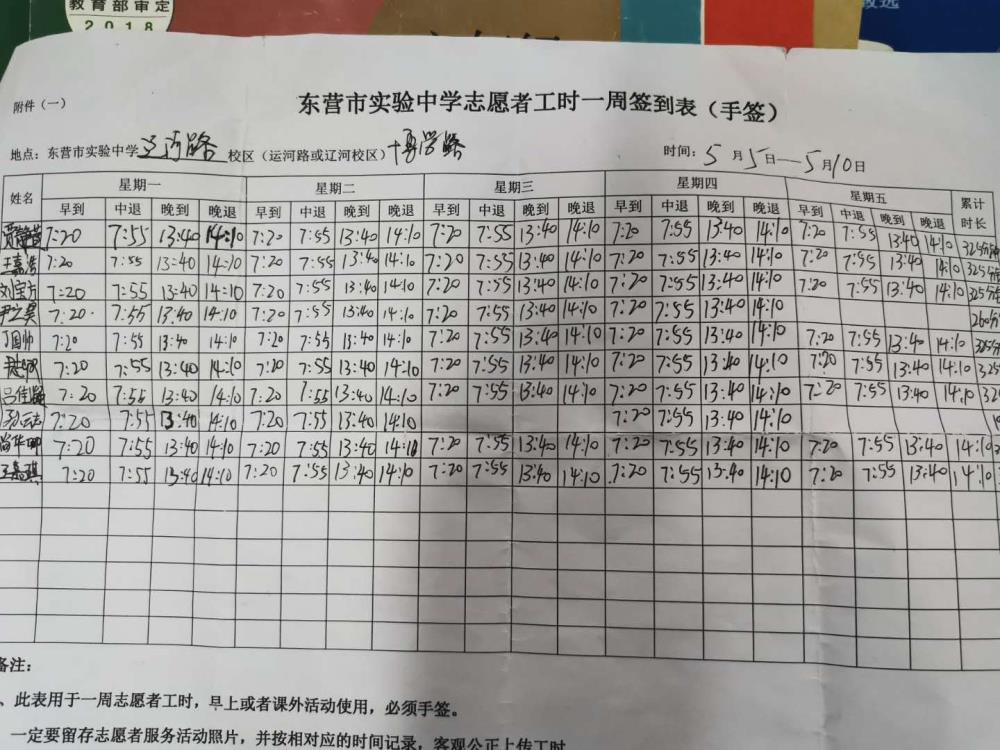 教育部审定
2018
附件（一）
东营市实验中学志愿者工时一周签到表（手签）
地点：东营市实验中学辽河路校区（运河路或辽河校区）博学路
时间：5月5日—5月10日
姓名 星期一 星期二 星期三 星期四 星期五 累计时长
早到 中退 晚到 晚退 早到 中退 晚到 晚退 早到 中退 晚到 晚退 早到 中退 晚到 晚退 早到 中退 晚到 晚退
7:20 7:55 13:40 14:10 7:20 7:55 13:40 14:10 7:20 7:55 13:40 14:10 7:20 7:55 13:40 14:10 7:20 7:55 13:40 14:10 325分钟
王嘉浩 7:20 7:55 13:40 14:10 7:20 7:55 13:40 14:10 7:20 7:55 13:40 14:10 7:20 7:55 13:40 14:10 7:20 7:55 13:40 14:10 325分
刘宝方 7:20 7:55 13:40 14:10 7:20 7:55 13:40 14:10 7:20 7:55 13:40 14:10 7:20 7:55 13:40 14:10 7:20 7:55 13:40 14:10 325分
尹文昊 7:20 7:55 13:40 14:10 7:20 7:55 13:40 14:10 7:20 7:55 13:40 14:10 7:20 7:55 13:40 14:10 260分
丁国帅 7:20 7:55 13:40 14:10 7:20 7:55 13:40 14:10 7:20 7:55 13:40 14:10 7:20 7:55 13:40 14:10 7:20 7:55 13:40 14:10 325分
7:20 7:55 13:40 14:10 7:20 7:55 13:40 14:10 7:20 7:55 13:40 14:10 7:20 7:55 13:40 14:10 7:20 7:55 13:40 14:10 325
7:20 7:55 13:40 14:10 7:20 7:55 13:40 14:10 7:20 7:55 13:40 14:10 7:20 7:55 13:40 14:10 7:20 7:55 13:40 14:10 32
7:20 7:55 13:40 14:10 7:20 7:55 13:40 14:10 7:20 7:55 13:40 14:10
7:20 7:55 13:40 14:10 7:20 7:55 13:40 14:10 7:20 7:55 13:40 14:10 7:20 7:55 13:40 14:10 7:20 7:55 13:40 14:10
王嘉琪 7:20 7:55 13:40 14:10 7:20 7:55 13:40 14:10 7:20 7:55 13:40 14:10 7:20 7:55 13:40 14:10 7:20 7:55 13:40 14:10
备注：
、此表用于一周志愿者工时，早上或者课外活动使用，必须手签。
一定要留存志愿者服务活动照片，并按相对应的时间记录，客观公正上传工时